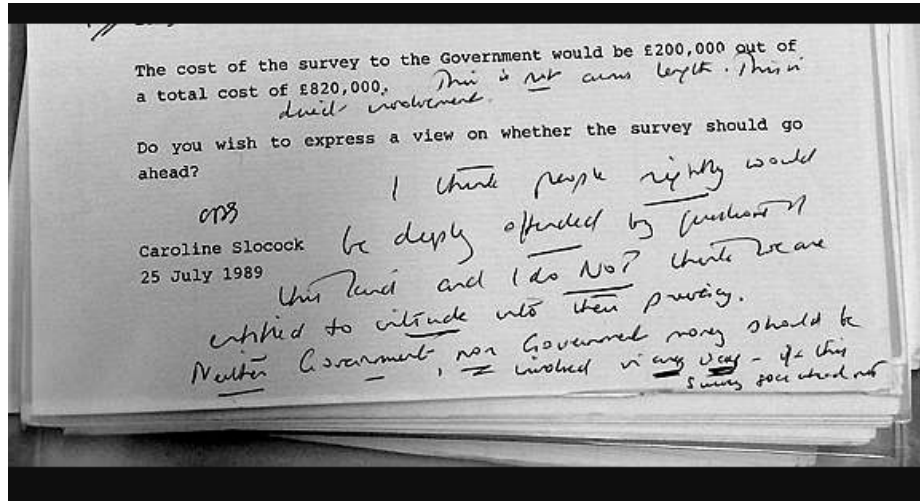 The cost of the survey to the Government would be £200,000 out of
a total cost of £820,000. This is not arms length. This is
direct involvement.
Do you wish to express a view on whether the survey should go
ahead?
I think people rightly would
be deeply offended by questions of
Caroline Slocock
25 July 1989
this kind and I do NOT think we are
entitled to intrude into their privacy.
Neither Government, nor Government money should be
involved in any way - if this
survey goes ahead